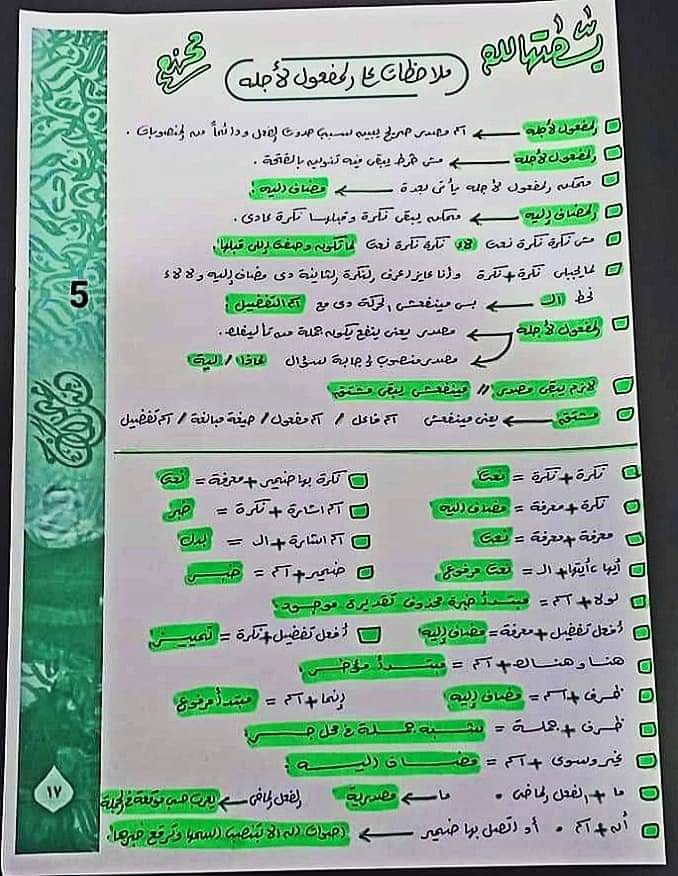 بسمتها لله
ملاحظات على المفعول لأجله
المفعول لأجله ← اسم مصدر صريح يبين سبب حدوث الفعل ودائماً من المنصوبات .
المفعول لأجله ← مش شرط يبقى فيه تنوين بالفتحة .
ممكن المفعول لأجله يأتى بعدة ← مضاف إليه .
المضاف إليه ← ممكن يبقى نكرة وقبلها نكرة عادى .
مش نكرة نكرة نعت لاء نكرة نكرة نعت لما تكون وصفت اللى قبلها .
لما يجيلى نكرة + نكرة وأنا عايز أعرف النكرة الثانية دى مضاف إليه ولا لاء
نحط الـ ← بس مينفعش الحركة دى مع اسم التفضيل .
المفعول لأجله ← مصدر يعنى ينفع يكون جملة من تأليفك .
مصدر منصوب لإجابة سؤال لماذا / ليه
لازم يبقى مصدر // مينفعش يبقى مشتق
مشتق ← يعنى مينفعش اسم فاعل / اسم مفعول / صيغة مبالغة / اسم تفضيل
نكرة + نكرة = نعت
نكرة بها ضمير + معرفة = نعت
نكرة + معرفة = مضاف إليه
اسم اشارة + نكرة = خبر
معرفة + معرفة = نعت
اسم اشارة + الـ = بدل
أيها ، أيتها + الـ = نعت مرفوع
ضمير + اسم = خبر
لولا + اسم = مبتدأ خبرة محذوف تقديرة موجود .
أفعل تفضيل + معرفة = مضاف إليه
أفعل تفضيل + نكرة = تمييز
هنا وهناك + اسم = مبتدأ مؤخر
ظرف + اسم = مضاف إليه
إنما + اسم = مبتدأ مرفوع
ظرف + جملة = شبه جملة فى محل جر
غير وسوى + اسم = مضاف إليه .
ما + الفعل الماضى . ما ← مصدرية الفعل الماضى ← يعرب حسب موقعة فى الجملة
أن + اسم . أو اتصل بها ضمير ← اخوات إن لا تنصب اسمها وترفع خبرها .
5
١٧